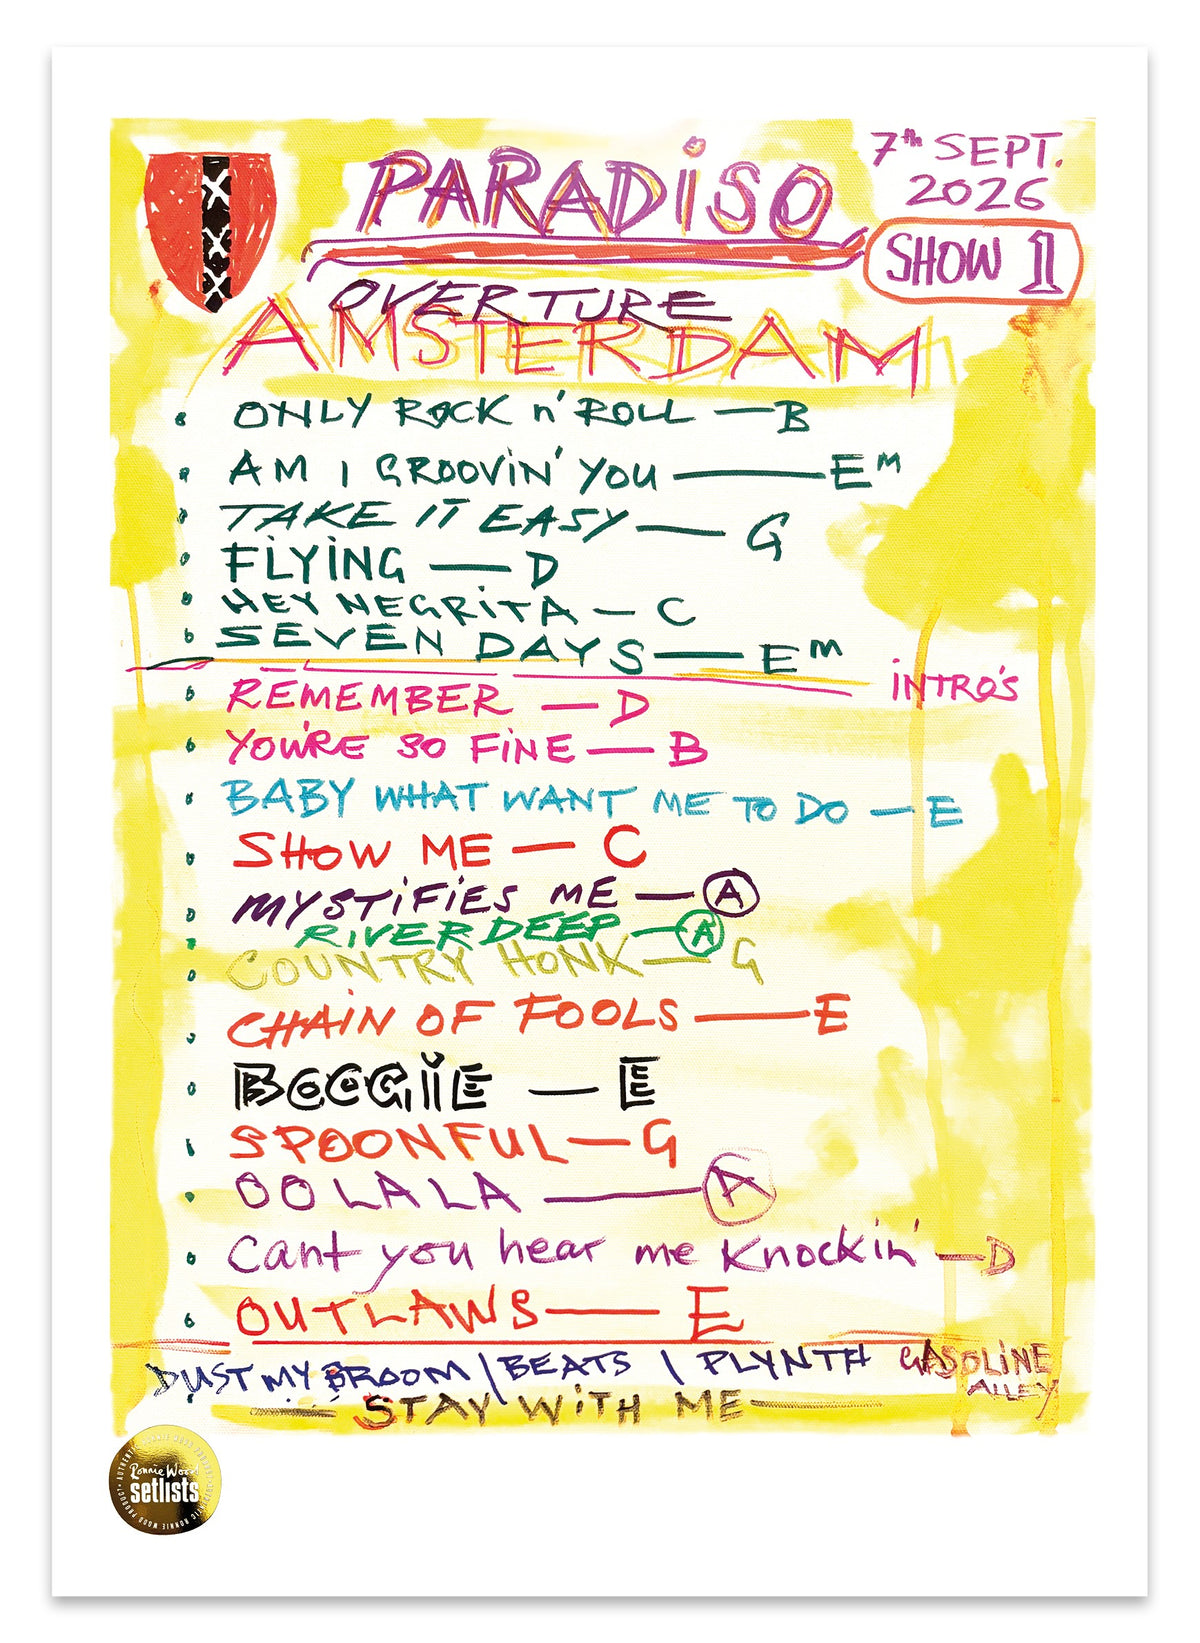 PARADiSO
7th SEPT.
2026
SHOW 1
OVERTURE
AMSTERDAM
ONLY ROCK n' ROLL — B
AM I GROOVIN' YOU — Em
TAKE IT EASY — G
FLYING — D
HEY NEGRITA — C
SEVEN DAYS — Em
iNTRO'S
REMEMBER — D
YOU'RE SO FINE — B
BABY WHAT WANT ME TO DO — E
SHOW ME — C
MYSTiFiES ME — A
RIVER DEEP — A
COUNTRY HONK — G
CHAiN OF FOOLS — E
BOOGiE — E
SPOONFUL — G
OO LA LA — A
Cant you hear me Knockin' — D
OUTLAWS — E
DUST MY BROOM / BEATS / PLYNTH GASOLiNE ALLEY
— STAY WiTH ME —
Ronnie Wood
setlists